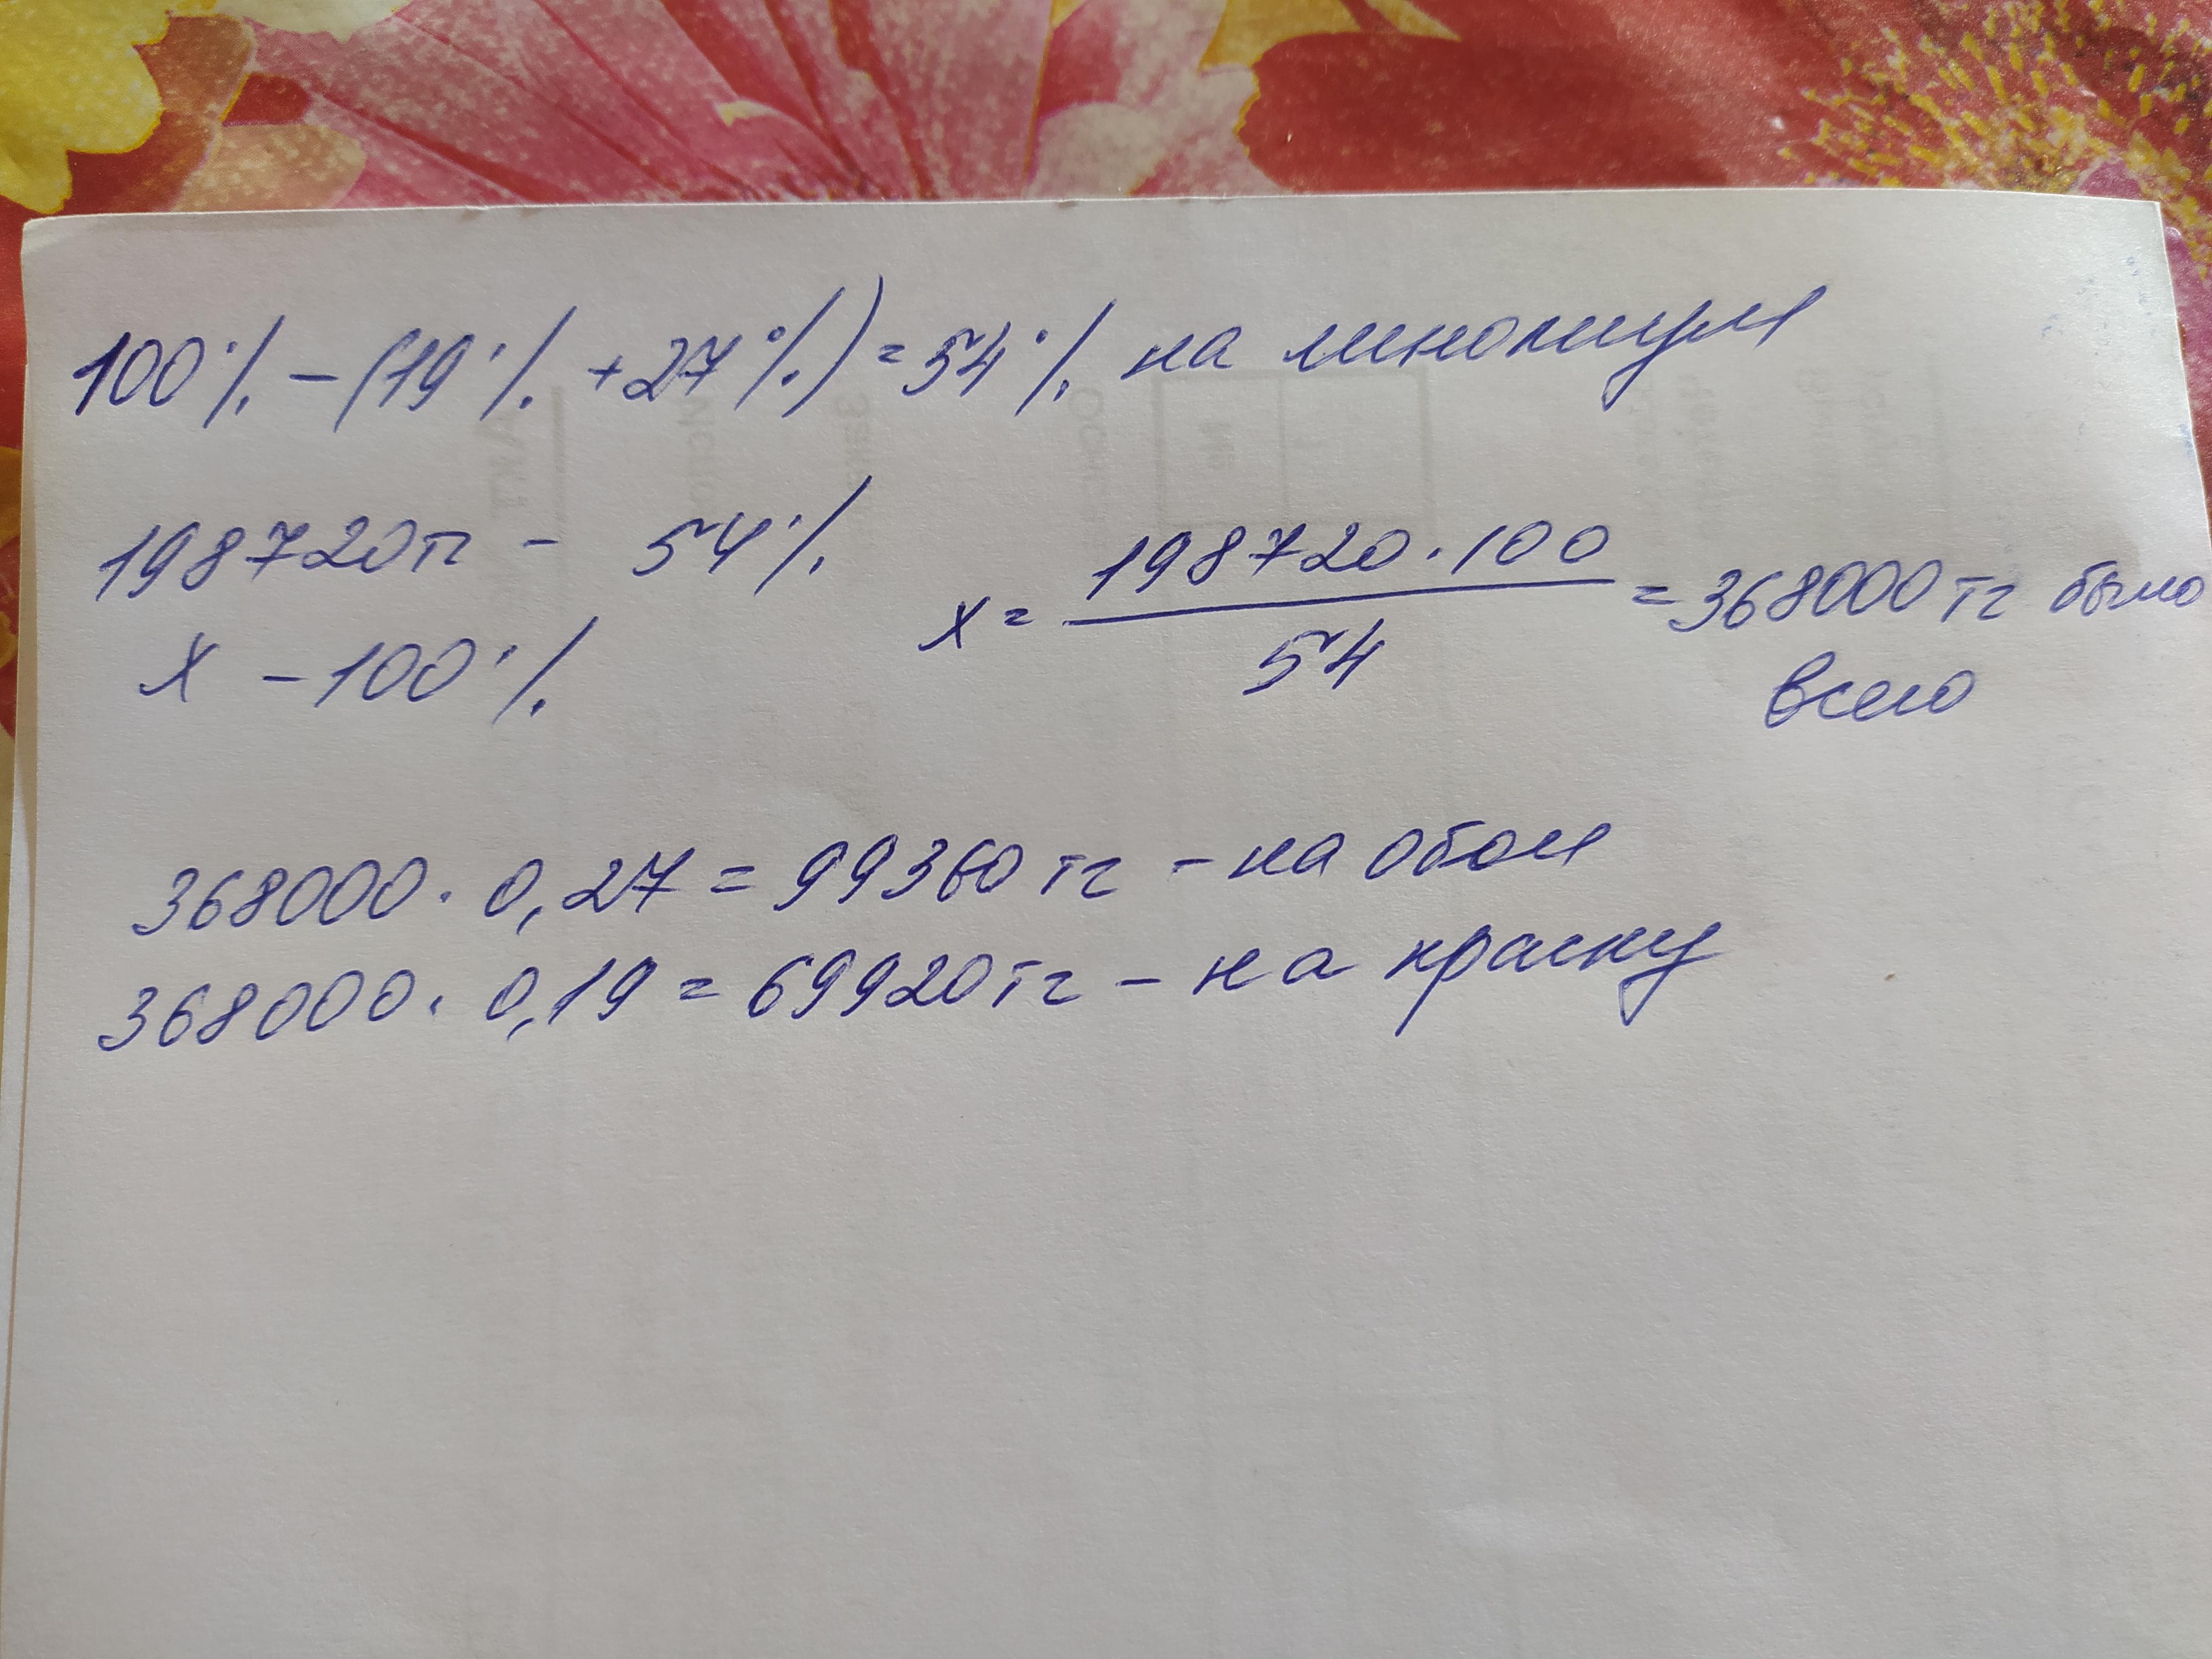 100% - (19% + 27%) = 54% на линолиум
198720тг - 54%
x - 100%
x = 198720 · 100 / 54 = 368000 тг было
всего
368000 · 0,27 = 99360 тг - на обои
368000 · 0,19 = 69920 тг - на краску